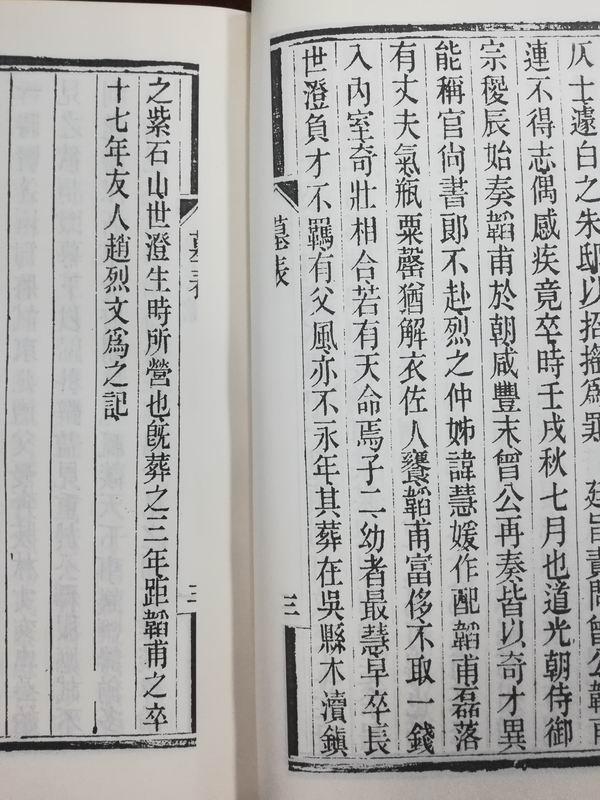 仄士遽白之朱邸以招搖爲罪 廷旨責問曾公韜甫
連不得志偶感疾竟卒時壬戌秋七月也道光朝侍御
宗稷辰始奏韜甫於朝咸豐末曾公再奏皆以奇才異
能稱官尙書郎不赴烈之仲姊諱慧媛作配韜甫磊落
有丈夫氣瓶粟罄猶解衣佐人饔韜甫富侈不取一錢
入內室奇壯相合若有天命焉子二幼者最慧早卒長
世澄負才不羈有父風亦不永年其葬在吳縣木瀆鎮
墓表 三
墓表 三
之紫石山世澄生時所營也旣葬之三年距韜甫之卒
十七年友人趙烈文爲之記